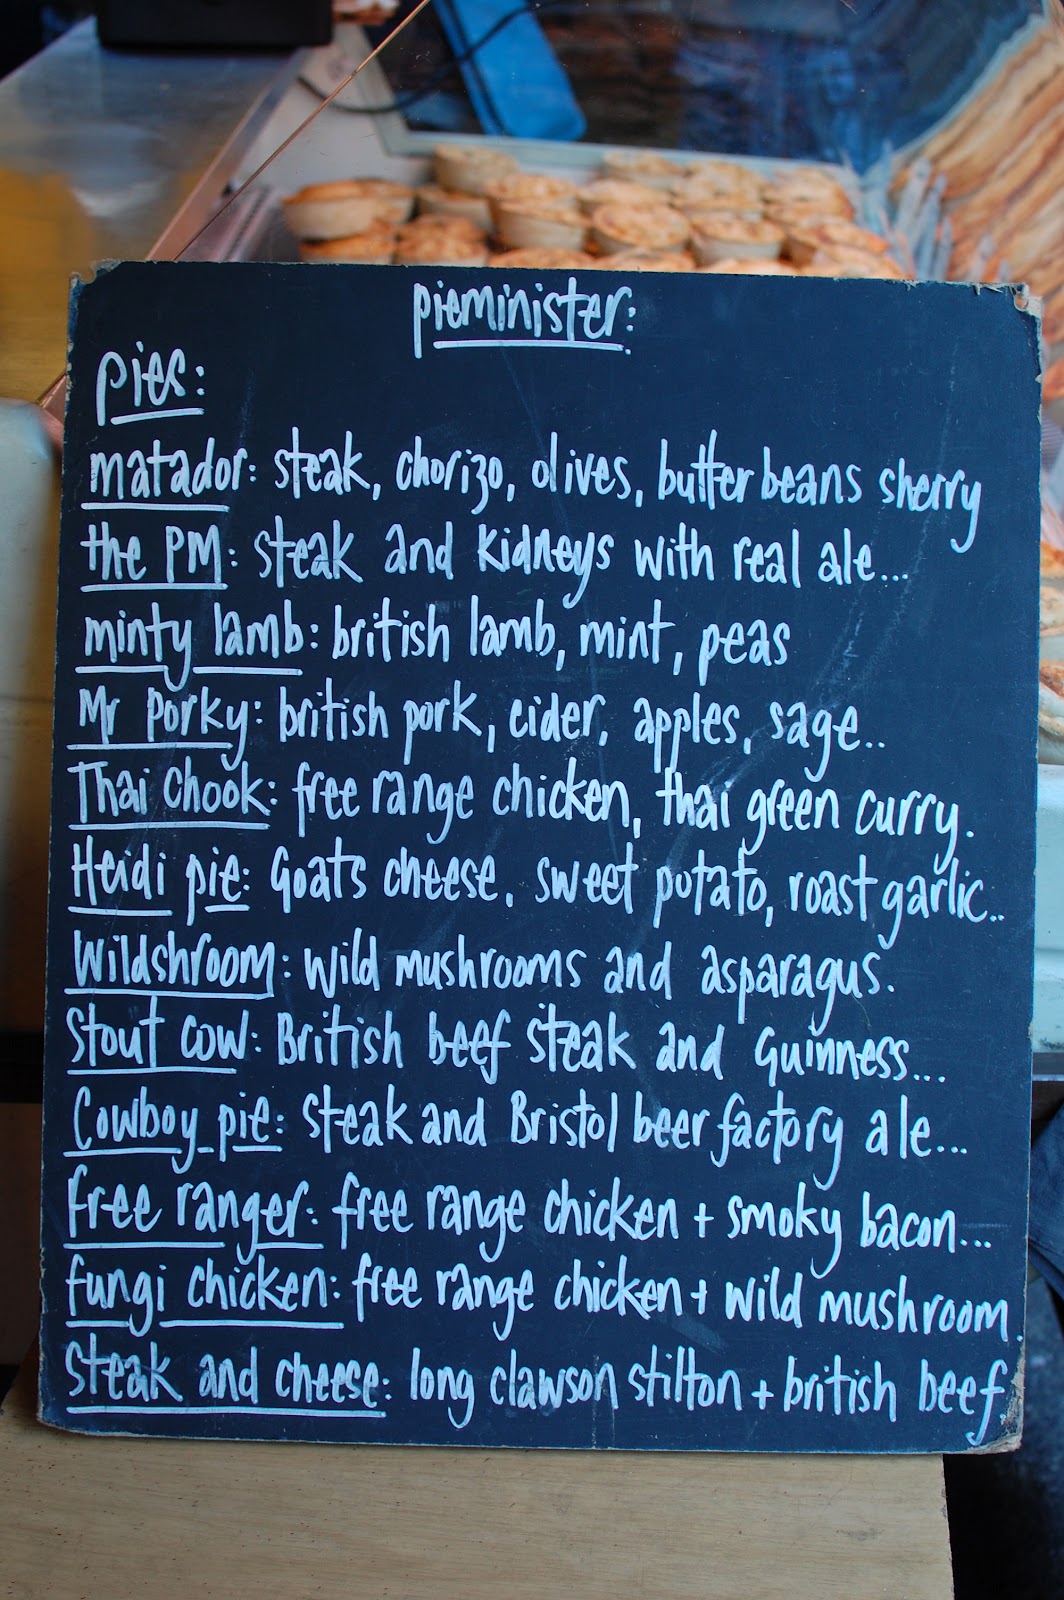 pieminister:
pies:
matador: steak, chorizo, olives, butter beans sherry
the PM: steak and kidneys with real ale...
minty lamb: british lamb, mint, peas
Mr Porky: british pork, cider, apples, sage..
Thai Chook: free range chicken, thai green curry.
Heidi pie: Goats cheese, sweet potato, roast garlic..
Wildshroom: wild mushrooms and asparagus.
Stout cow: British beef steak and Guinness...
Cowboy pie: steak and Bristol beer factory ale...
free ranger: free range chicken + smoky bacon...
fungi chicken: free range chicken + wild mushroom.
steak and cheese: long clawson stilton + british beef.